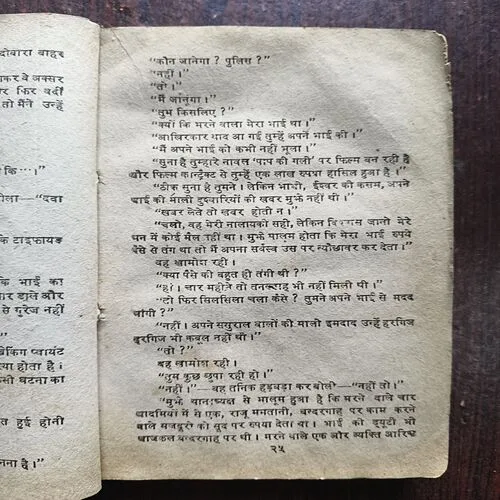 दोबारा बाहर
कर वे अक्सर
र फिर वर्दी
तो मैंने उन्हें
कि ···।"
ोला—"दवा
कि टाइफायड
कि भाई का
चार डाले और
से गुरेज नहीं
किंग प्वायंट
होता है।
सी घटना का
त हुई होनी
नना है।"
"कौन जानेगा? पुलिस?"
"नहीं।"
"तो।"
"मैं जानूंगा।"
"तुम किसलिए?"
"क्यों कि मरने वाला मेरा भाई था।"
"आखिरकार याद आ गई तुम्हें अपने भाई की।"
"मैं अपने भाई को कभी नहीं भूला।"
"सुना है तुम्हारे नावल 'पाप की गली' पर फिल्म बन रही है
और फिल्म कान्ट्रैक्ट से तुम्हें एक लाख रुपया हासिल हुआ है।"
"ठीक सुना है तुमने। लेकिन भाभी, ईश्वर की कसम, अपने
भाई की माली दुश्वारियों की खबर मुझे नहीं थी।"
"खबर लेते तो खबर होती न।"
"चलो, वह मेरी नालायकी सही, लेकिन विश्वास जानो मेरे
मन में कोई मैल नहीं था। मुझे मालूम होता कि मेरा भाई रुपये
पैसे से तंग था तो मैं अपना सर्वस्व उस पर न्यौछावर कर देता।"
वह खामोश रही।
"क्या पैसे की बहुत ही तंगी थी?"
"हां। चार महीने तो तनख्वाह भी नहीं मिली थी।"
"तो फिर सिलसिला चला कैसे? तुमने अपने भाई से मदद
मांगी?"
"नहीं। अपने ससुराल वालों की माली इमदाद उन्हें हरगिज
हरगिज भी कबूल नहीं थी।"
"तो?"
वह खामोश रही।
"तुम कुछ छुपा रही हो।"
"नहीं।"—वह तनिक हड़बड़ा कर बोली—"नहीं तो।"
"मुझे थानाध्यक्ष से मालूम हुआ है कि मरने वाले चार
आदमियों में से एक, राजू मनतानी, बन्दरगाह पर काम करने
वाले मजदूरों को सूद पर रुपया देता था। भाई की ड्यूटी भी
आजकल बन्दरगाह पर थी। मरने वाले एक और व्यक्ति आरिफ
२५